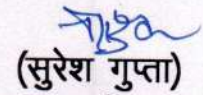 (सुरेश गुप्ता)